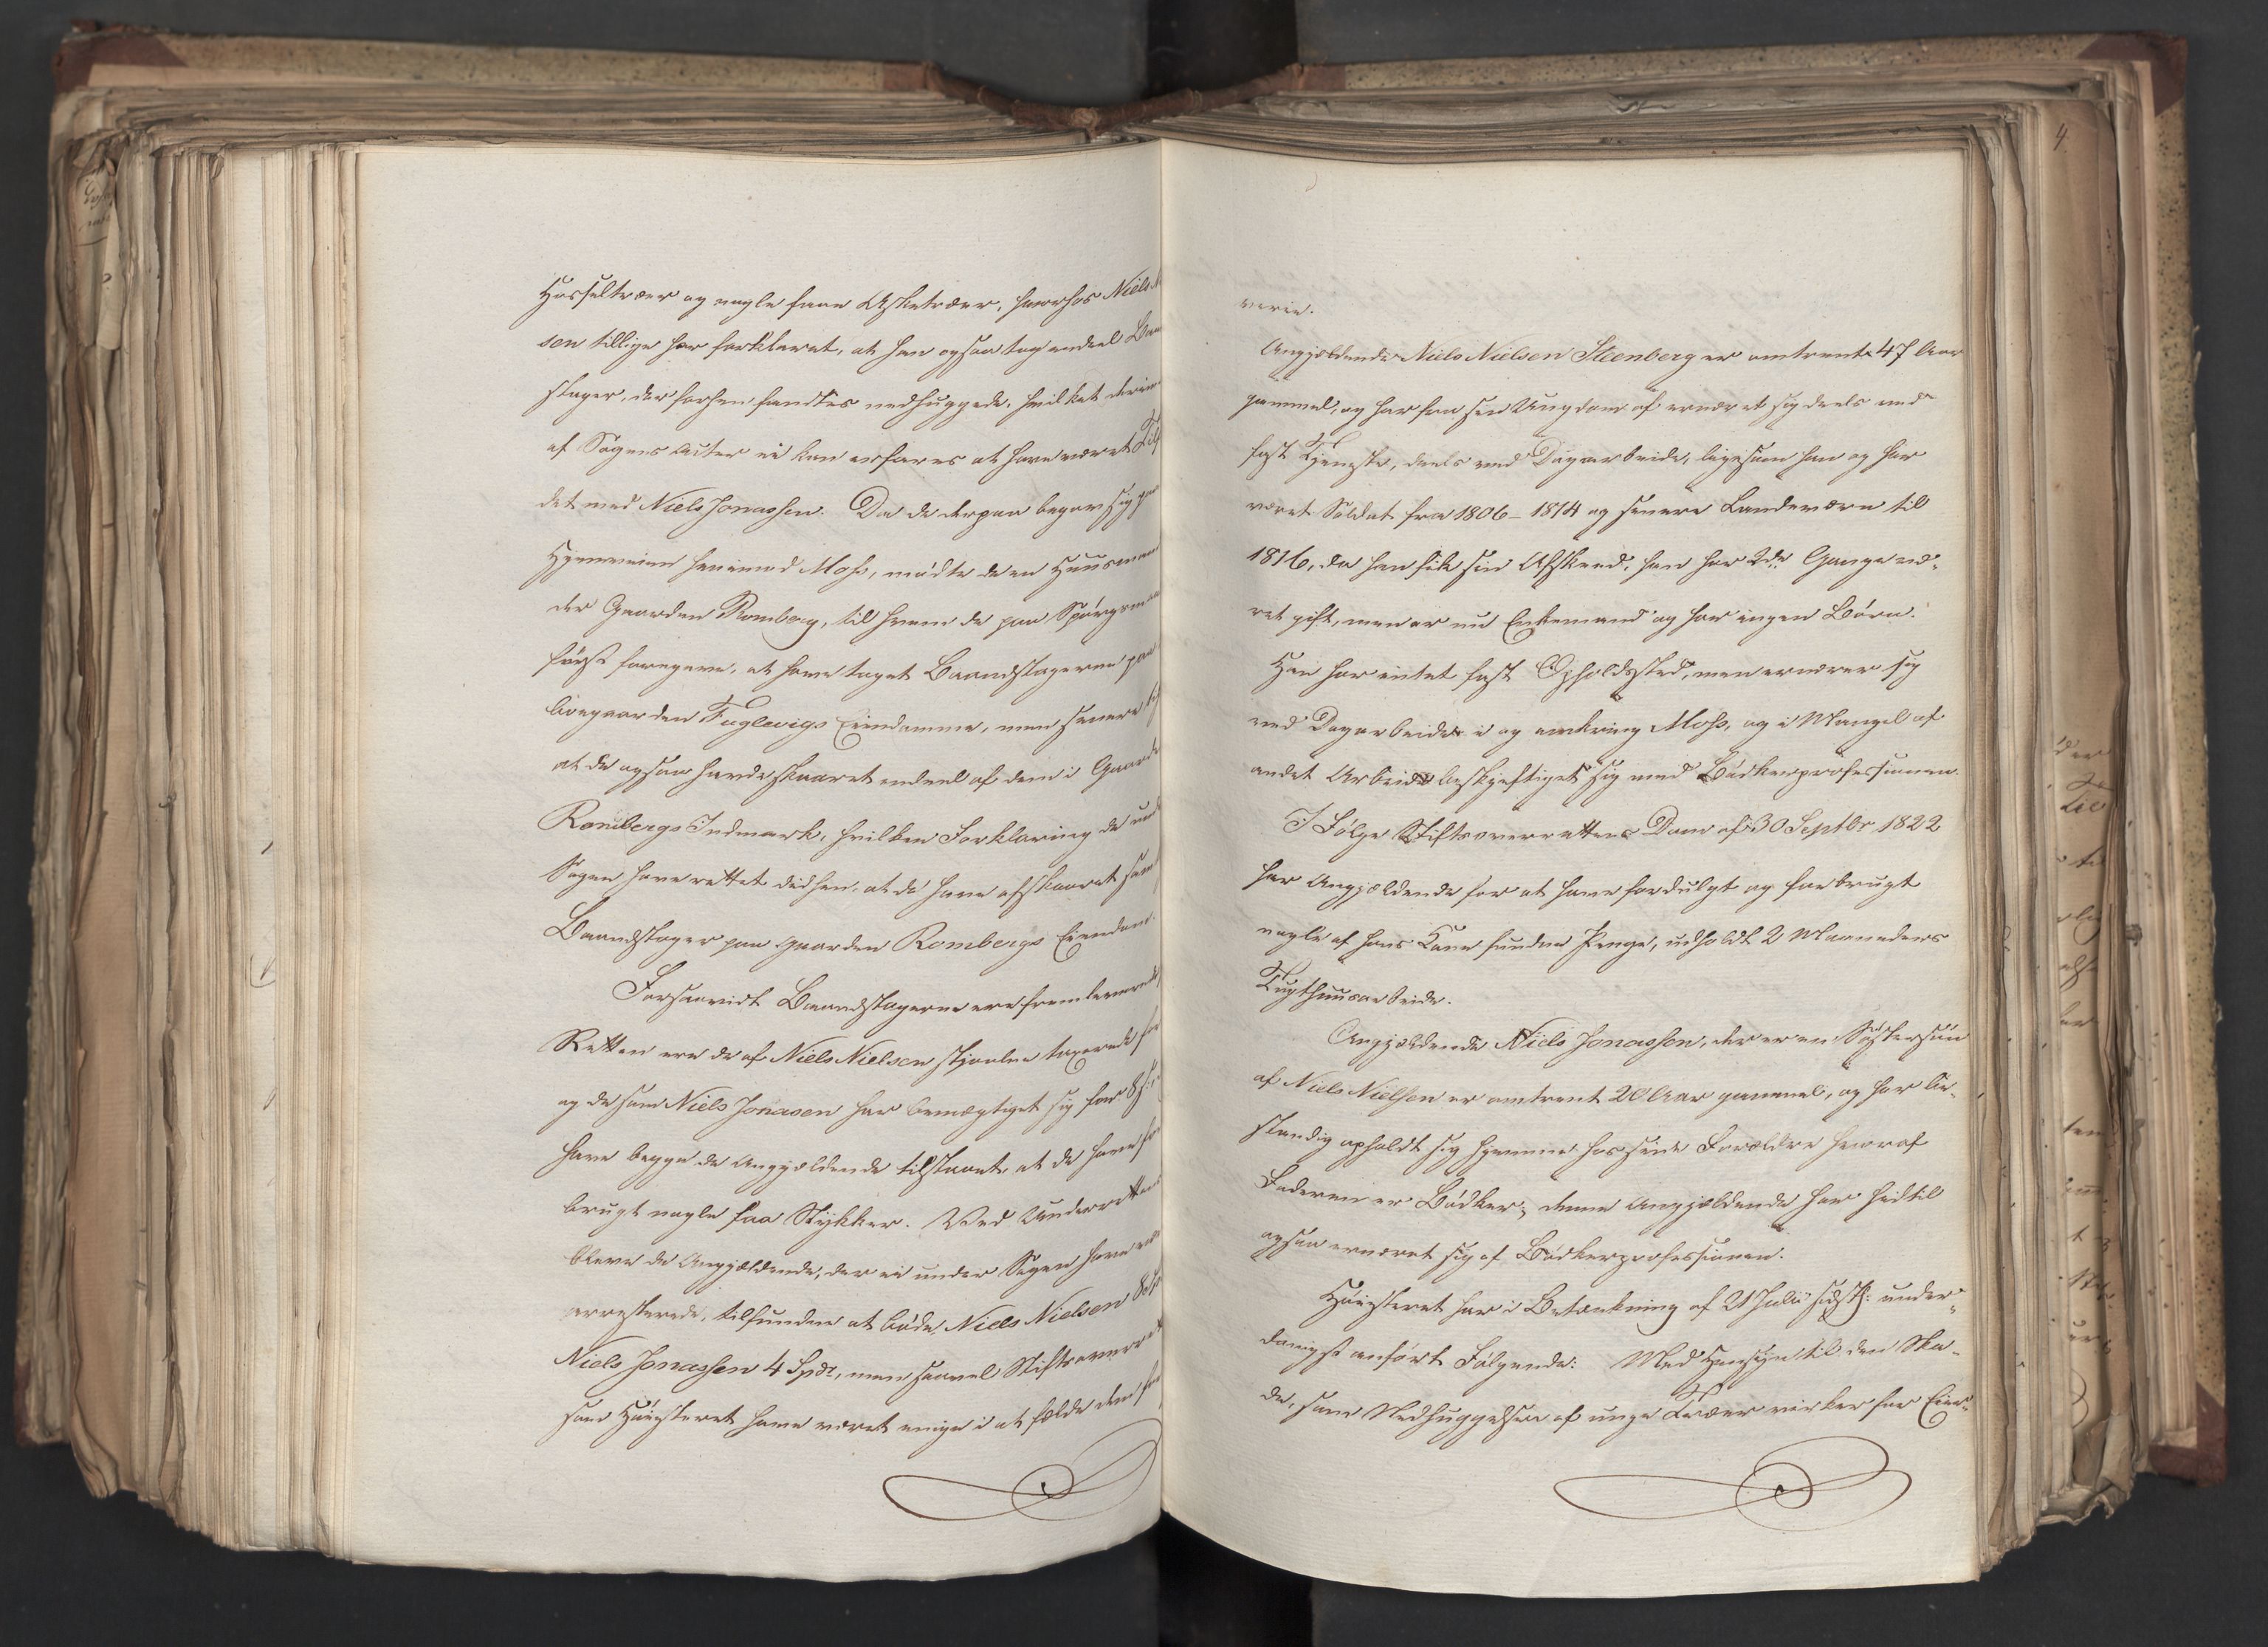 Hasseltræer og nogle faae Asketræer, hvorhos Niels
sen tillige har forklaret, at han ogsaa tog endeel
stager, der forhen fandtes nedhuggede, hvilket
af Sagens Acter ei kan erfares at have været
det med Niels Jonassen. Da de derpaa begav sig
Hjemveien henimod Moss, mødte de en Huusmand
der Gaarden Romberg, til hvem de paa Spørgsmaal
først foregave, at have taget Baandstagerne paa
Avegaarden Fuglevigs Eiendomme, men senere
at de ogsaa havde skaaret endeel af dem i
Rombergs Indmark, hvilken Forklaring de
Sagen have rettet didhen, at de have afskaaret
Baandstager paa Gaarden Rombergs
Forsaavidt Baandstagerne ere fremleverede
Retten ere de af Niels Nielsen stjaalne taxerede for
og de som Niels Jonasen har bemægtiget sig for
have begge de Angjældende tilstaaet, at de have
brugt nogle faa Stykker. Ved Underretten
bleve de Angjældende, der ei under Sagen have
arresterede, tilfundne at bøde Niels Nielsen
Niels Jonassen 4 Spdr, men saavel
som Høiesteret have været enige i at fælde dem
verie.
Angjældende Niels Nielsen Steenberg er omtrent 47 Aar
gammel, og har fra sin Ungdom af ernæret sig deels ved
fast Tjeneste, deels ved Dagarbeide, ligesom han og har
været Soldat fra 1806-1814 og senere Landeværn til
1816, da han fik sin Afskeed, han har 2de Gange væ-
ret gift, men er nu Enkemand og har ingen Børn.
Han har intet fast Opholdssted, men ernærer sig
ved Dagarbeide i og omkring Moss, og i Mangel af
andet Arbeide beskjeftiget sig med Bødkerprofessionen.
I Følge Stiftsoverrettens Dom af 30 Septbr 1822
har Angjældende for at have fordulgt og forbrugt
nogle af hans Kone fundne Penge, udholdt 2 Maaneders
Tugthuusarbeide.
Angjældende Niels Jonassen, der er en Søstersøn
af Niels Nielsen er omtrent 20 Aar gammel, og har be-
standig opholdt sig hjemme hos sine Forældre hvoraf
Faderen er Bødker; denne Angjældende har hidtil
ogsaa ernæret sig af Bødkerprofessionen.
Høiesteret har i Betænkning af 21 Julii sidstl: under-
danigst anført Følgende: Med Hensyn til den Ska-
de, som Nedhuggelsen af unge Træer virker for Eien-